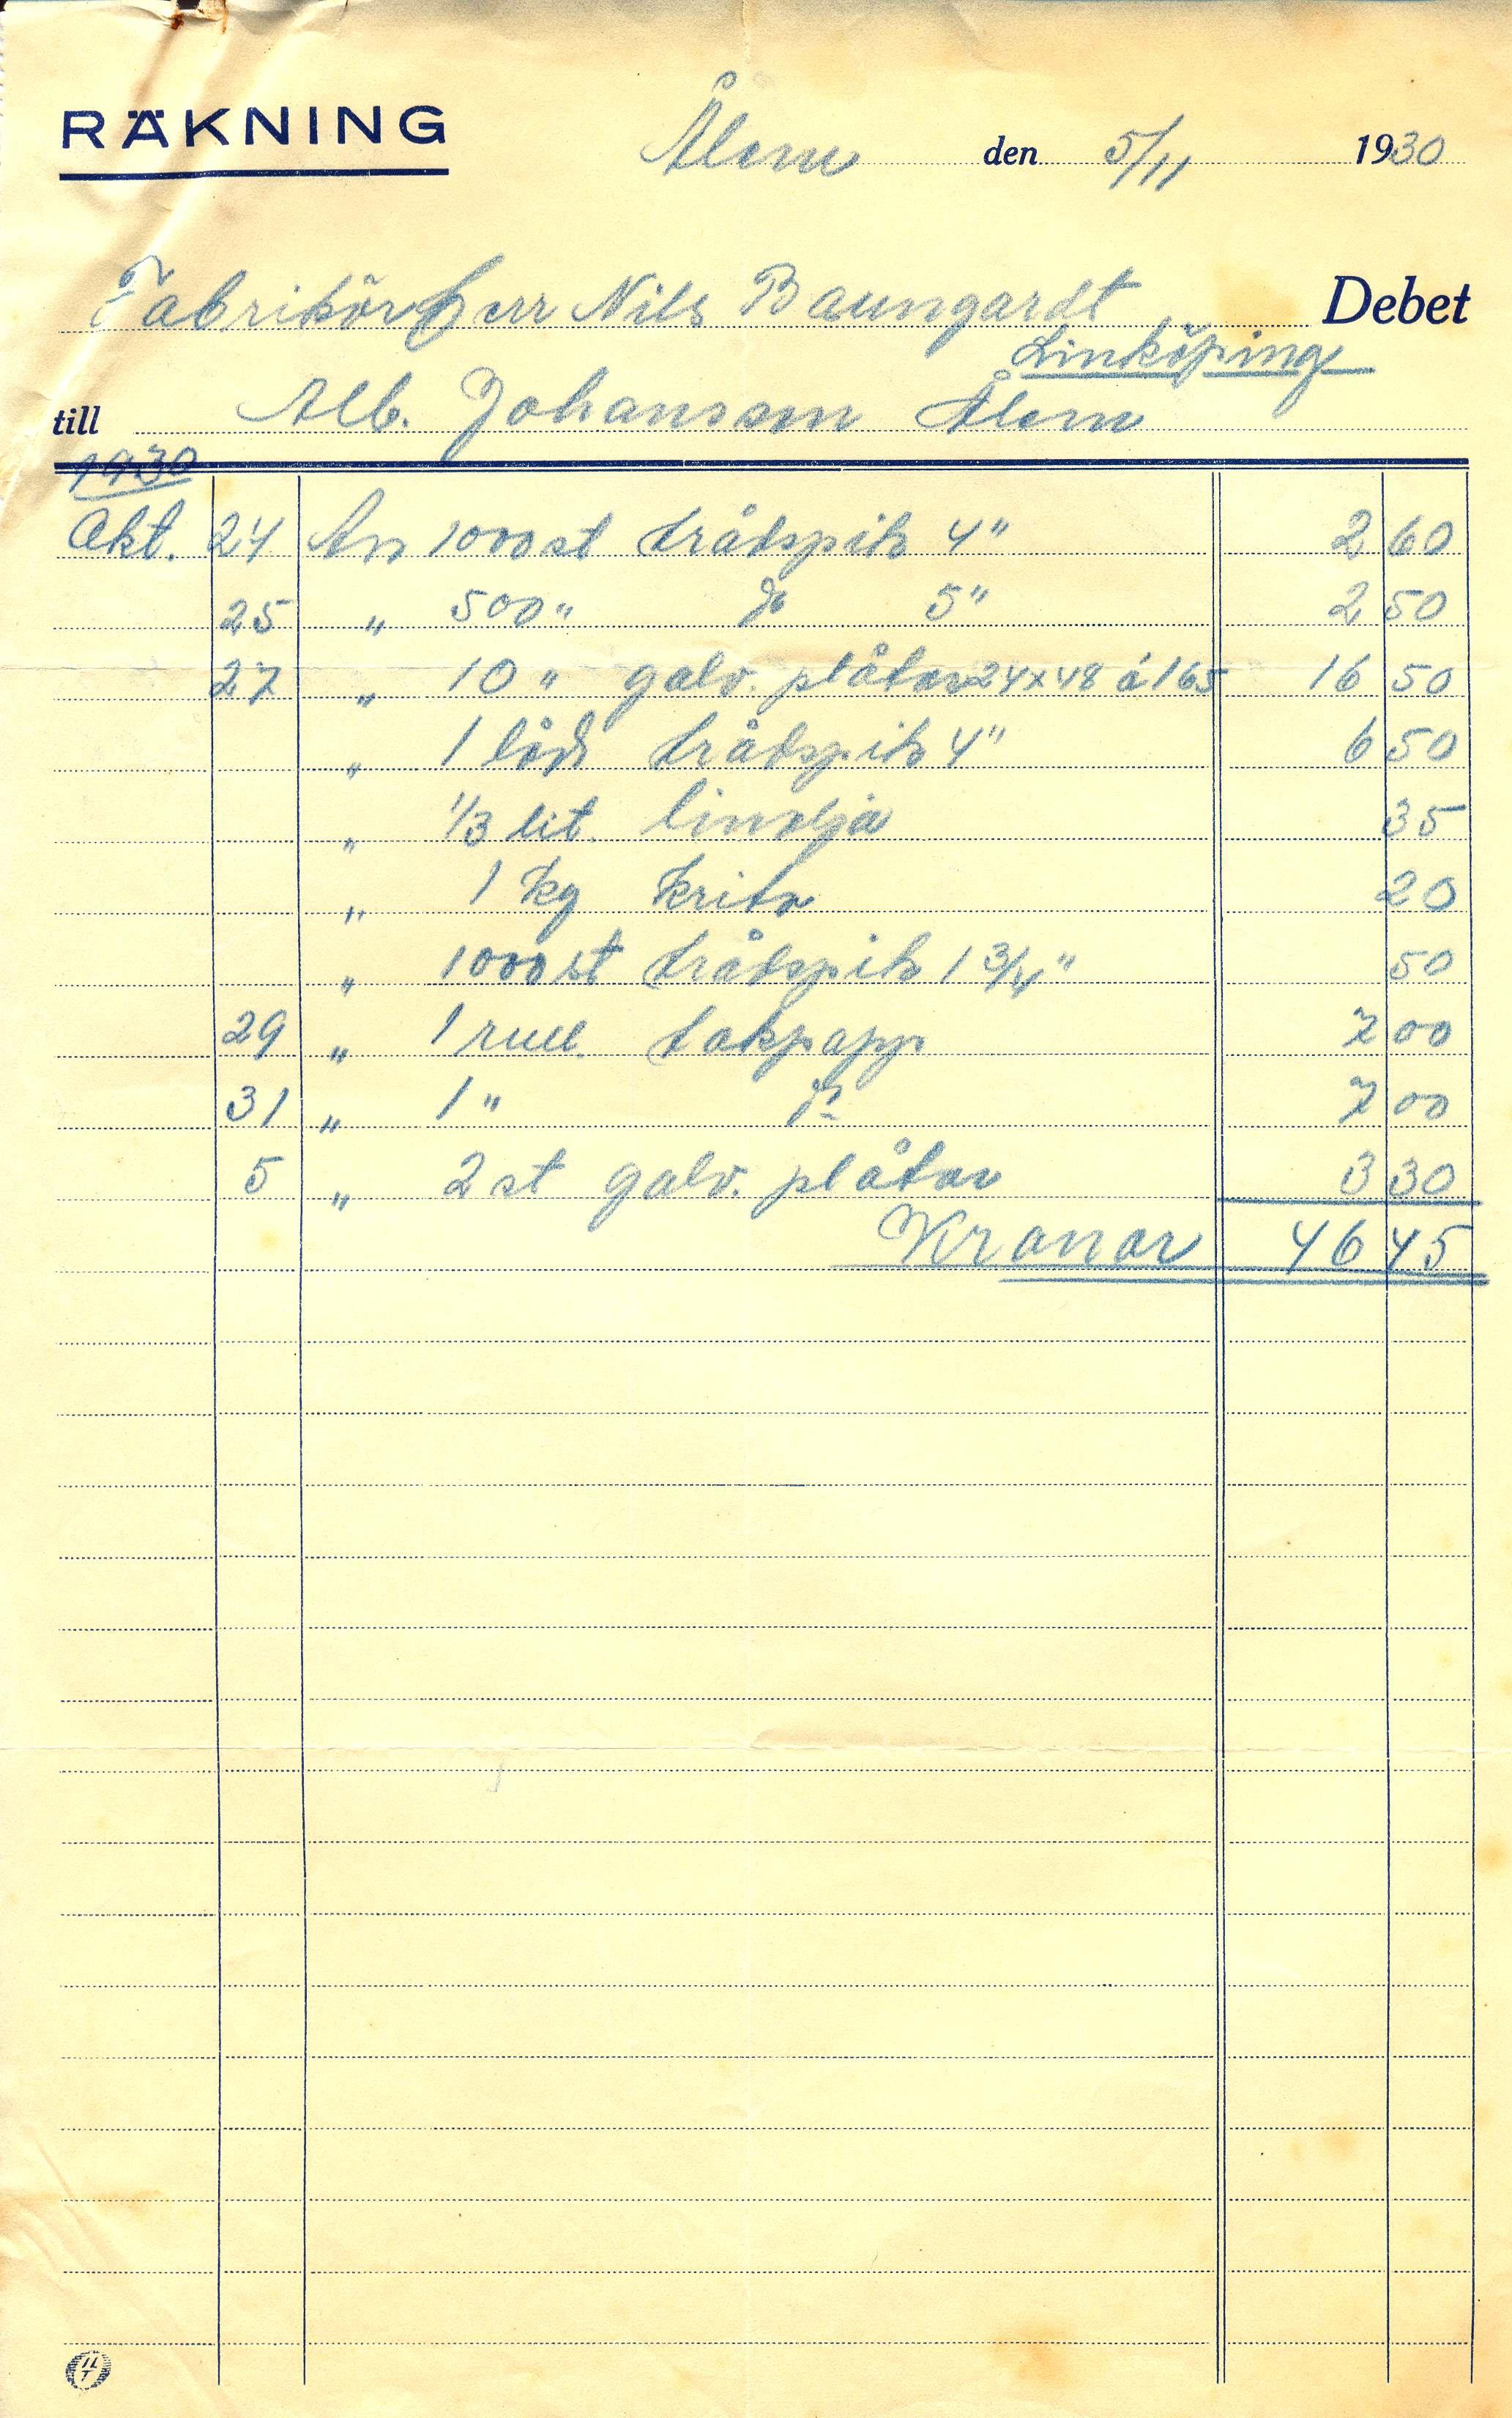 RÄKNING Ålem den 5/11 1930
Fabrikör Herr Nils Baungardt Debet
Linköping
till Alb. Johansson Ålem
1930
Okt. 24 An 1000 st trådspik 4" 2 60
25 " 500 " do 5" 2 50
27 " 10 " galv. plåtar 24x48 á 165 16 50
" 1 låda trådspik 4" 6 50
" 1/3 lit. linolja 35
" 1 kg krita 20
" 1000 st trådspik 1 3/4" 50
29 " 1 rull. takpapp 7 00
31 " 1 " do 7 00
5 " 2 st galv. plåtar 3 30
Kronor 46 45